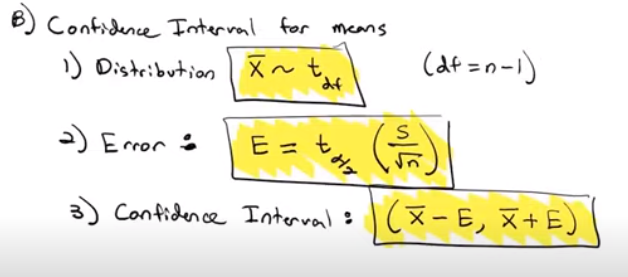 B) Confidence Interval for means
1) Distribution X̄ ~ t_df (df = n-1)
2) Error : E = t_α/2 (S/√n)
3) Confidence Interval : (X̄ - E, X̄ + E)